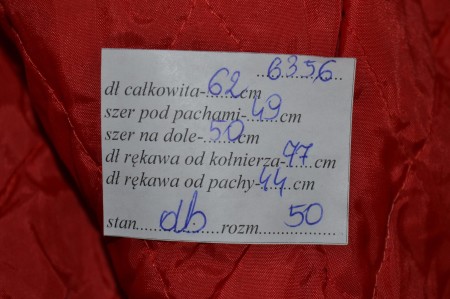 6356
dł całkowita-62cm
szer pod pachami-49cm
szer na dole-50cm
dł rękawa od kołnierza-77cm
dł rękawa od pachy-44cm
stan db rozm 50